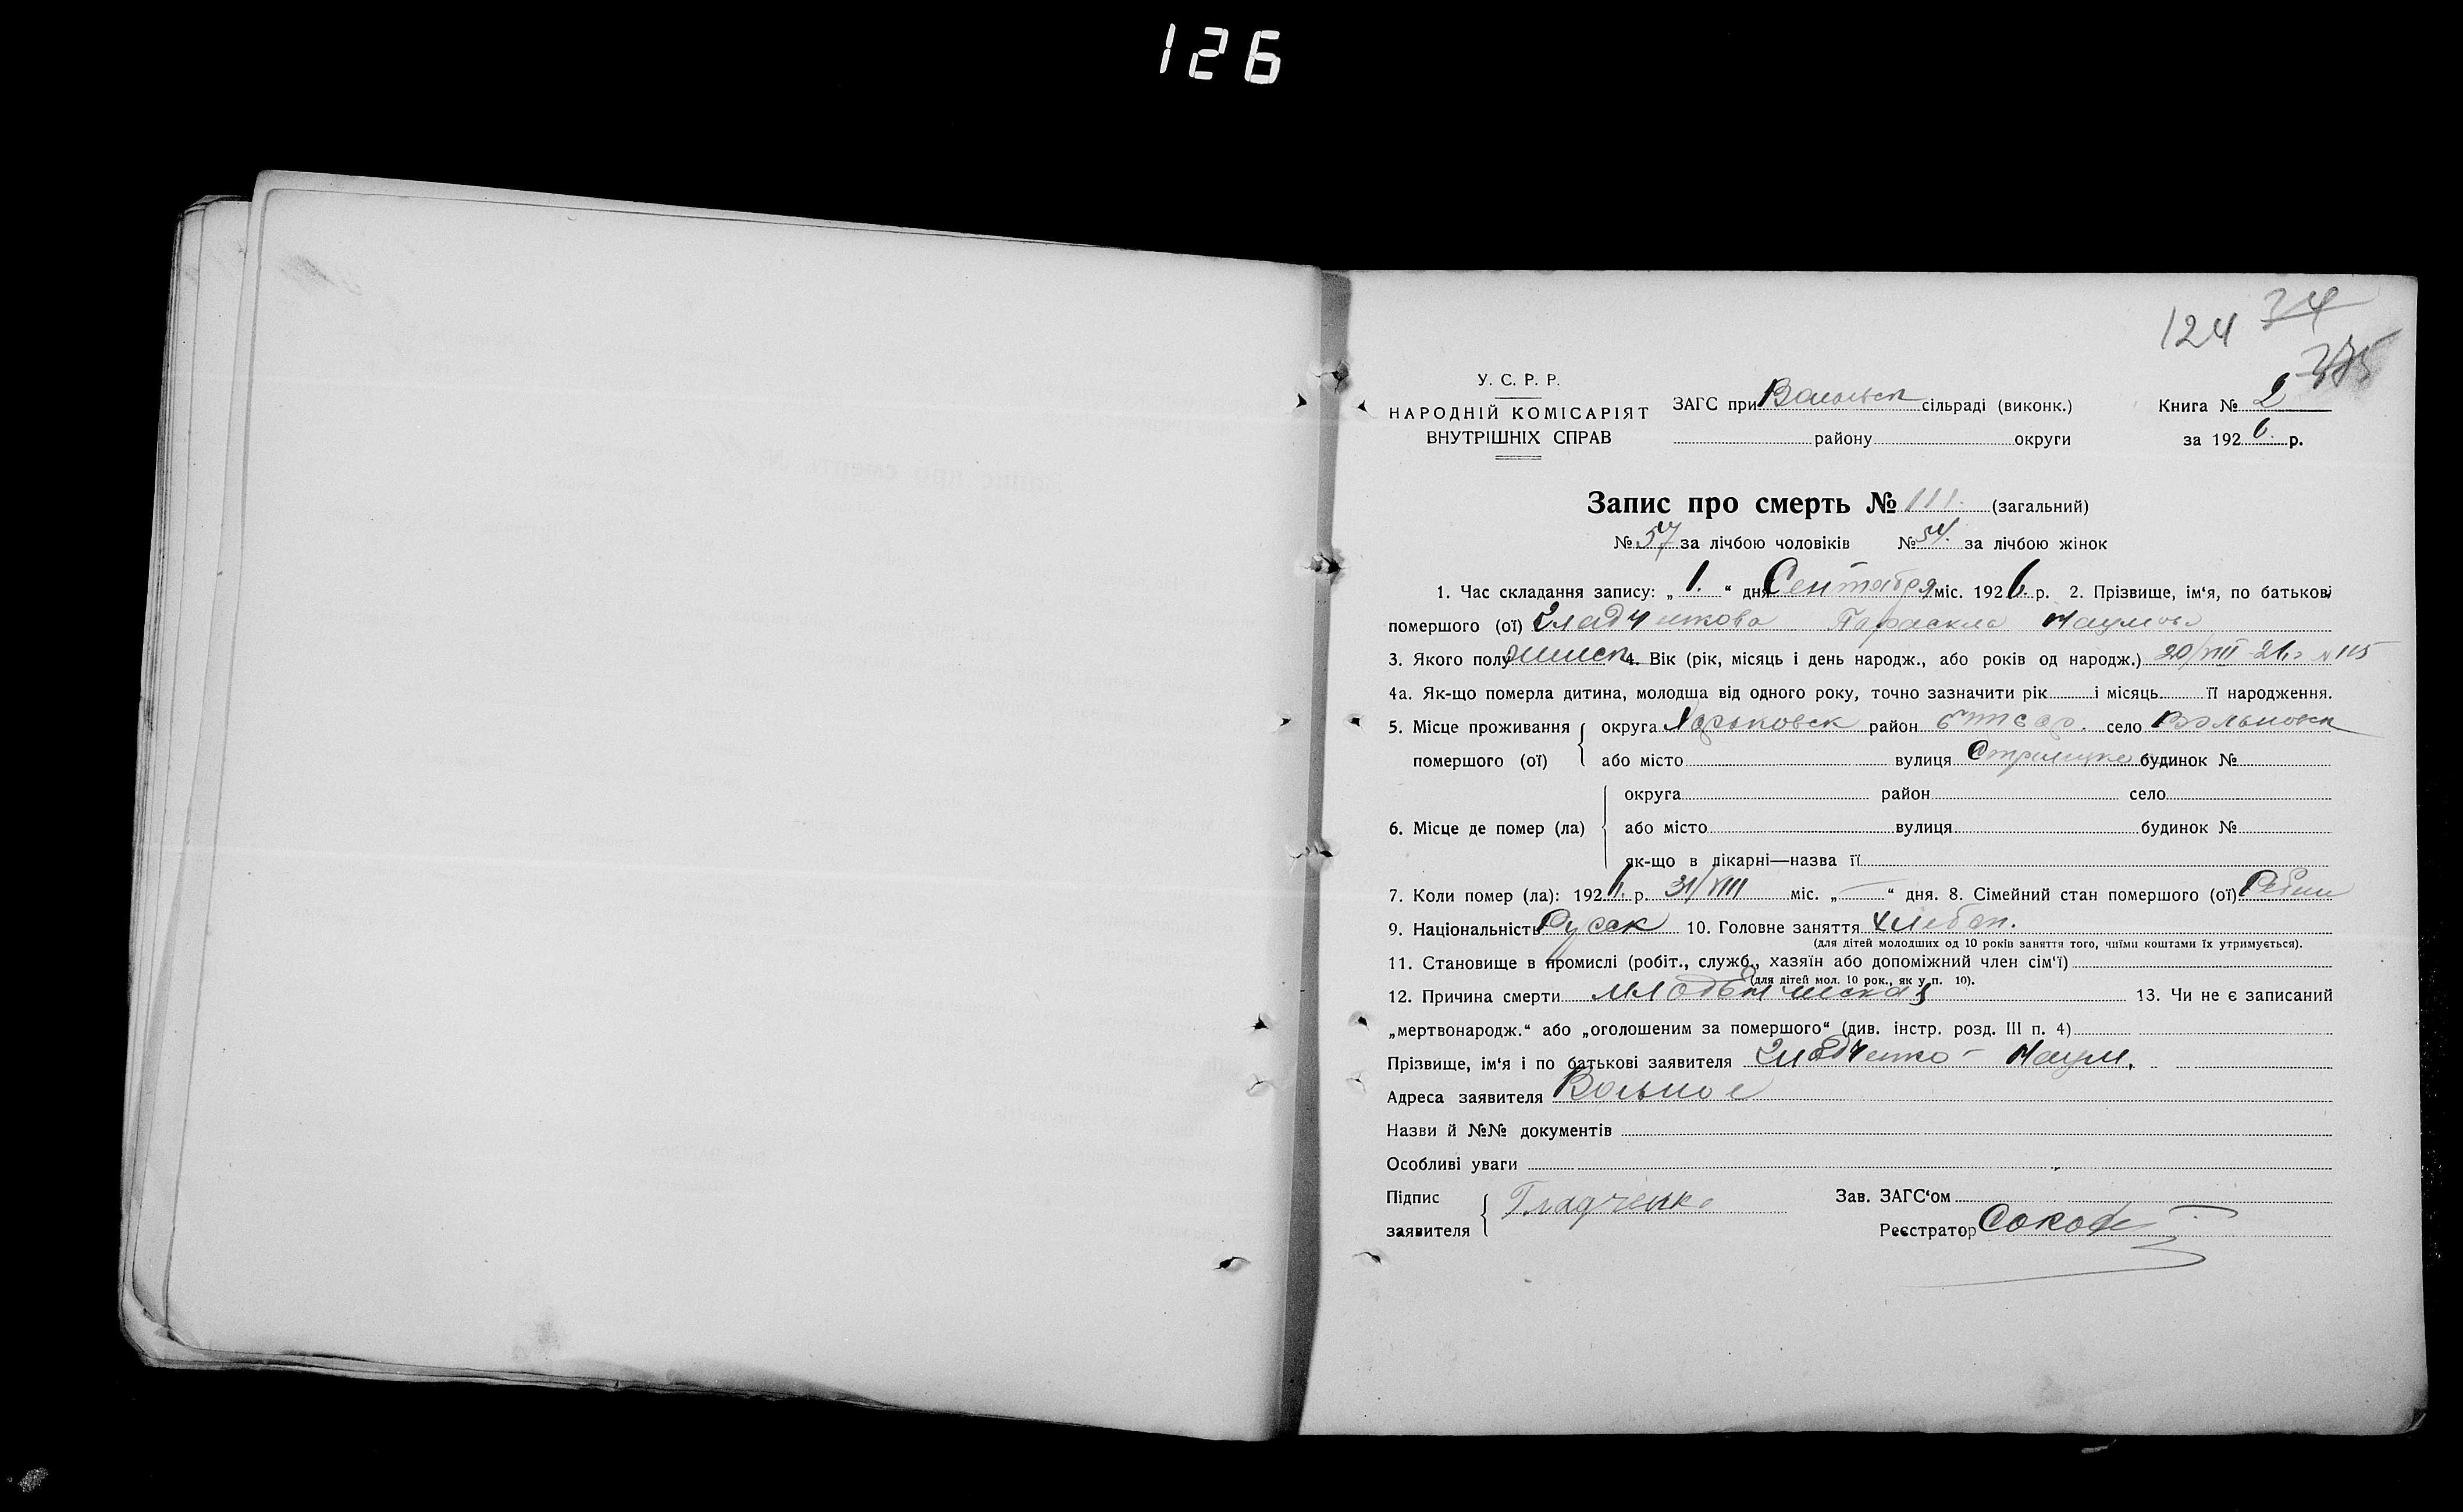 126
124 34
375
У. С. Р. Р.
НАРОДНІЙ КОМІСАРІЯТ
ВНУТРІШНІХ СПРАВ
ЗАГС при Вольнск сільраді (виконк.)
району округи
Книга № 2
за 1926 р.
Запис про смерть № 111. (загальний)
№ 57 за лічбою чоловіків № 54. за лічбою жінок
1. Час складання запису: „ 1. “ дня Сентября міс. 1926 р. 2. Прізвище, ім‘я, по батькові
помершого (ої) Гладченкова Параскева Наумовн
3. Якого полу женск 4. Вік (рік, місяць і день народж., або років од народж.) 20/VIII 26 г № 115
4а. Як-що померла дитина, молодша від одного року, точно зазначити рік і місяць її народження.
5. Місце проживання помершого (ої) округа Харьковск район село Вольновск
або місто вулиця будинок №
6. Місце де помер (ла) округа район село
або місто вулиця будинок №
як-що в лікарні—назва її
7. Коли помер (ла): 1926 р. 31/VIII міс. „ — “ дня. 8. Сімейний стан помершого (ої)
9. Національність Русск 10. Головне заняття хлебоп.
(для дітей молодших од 10 років заняття того, чиїми коштами їх утримується).
11. Становище в промислі (робіт., служб., хазяїн або допоміжний член сім‘ї)
(для дітей мол. 10 рок., як у п. 10).
12. Причина смерти младенческая 13. Чи не є записаний
„мертвонародж.“ або „оголошеним за помершого“ (див. інстр. розд. III п. 4)
Прізвище, ім‘я і по батькові заявителя Гладченко - Наум.
Адреса заявителя Вольное
Назви й №№ документів
Особливі уваги
Підпис заявителя Гладченко
Зав. ЗАГС‘ом
Реєстратор